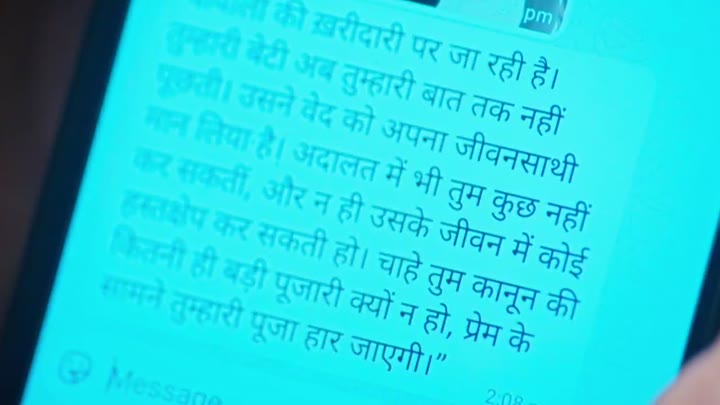 pm
की ख़रीदारी पर जा रही है।
तुम्हारी बेटी अब तुम्हारी बात तक नहीं
पूछती। उसने वेद को अपना जीवनसाथी
मान लिया है। अदालत में भी तुम कुछ नहीं
कर सकतीं, और न ही उसके जीवन में कोई
हस्तक्षेप कर सकती हो। चाहे तुम कानून की
कितनी ही बड़ी पूजारी क्यों न हो, प्रेम के
सामने तुम्हारी पूजा हार जाएगी।”
2:08
Message